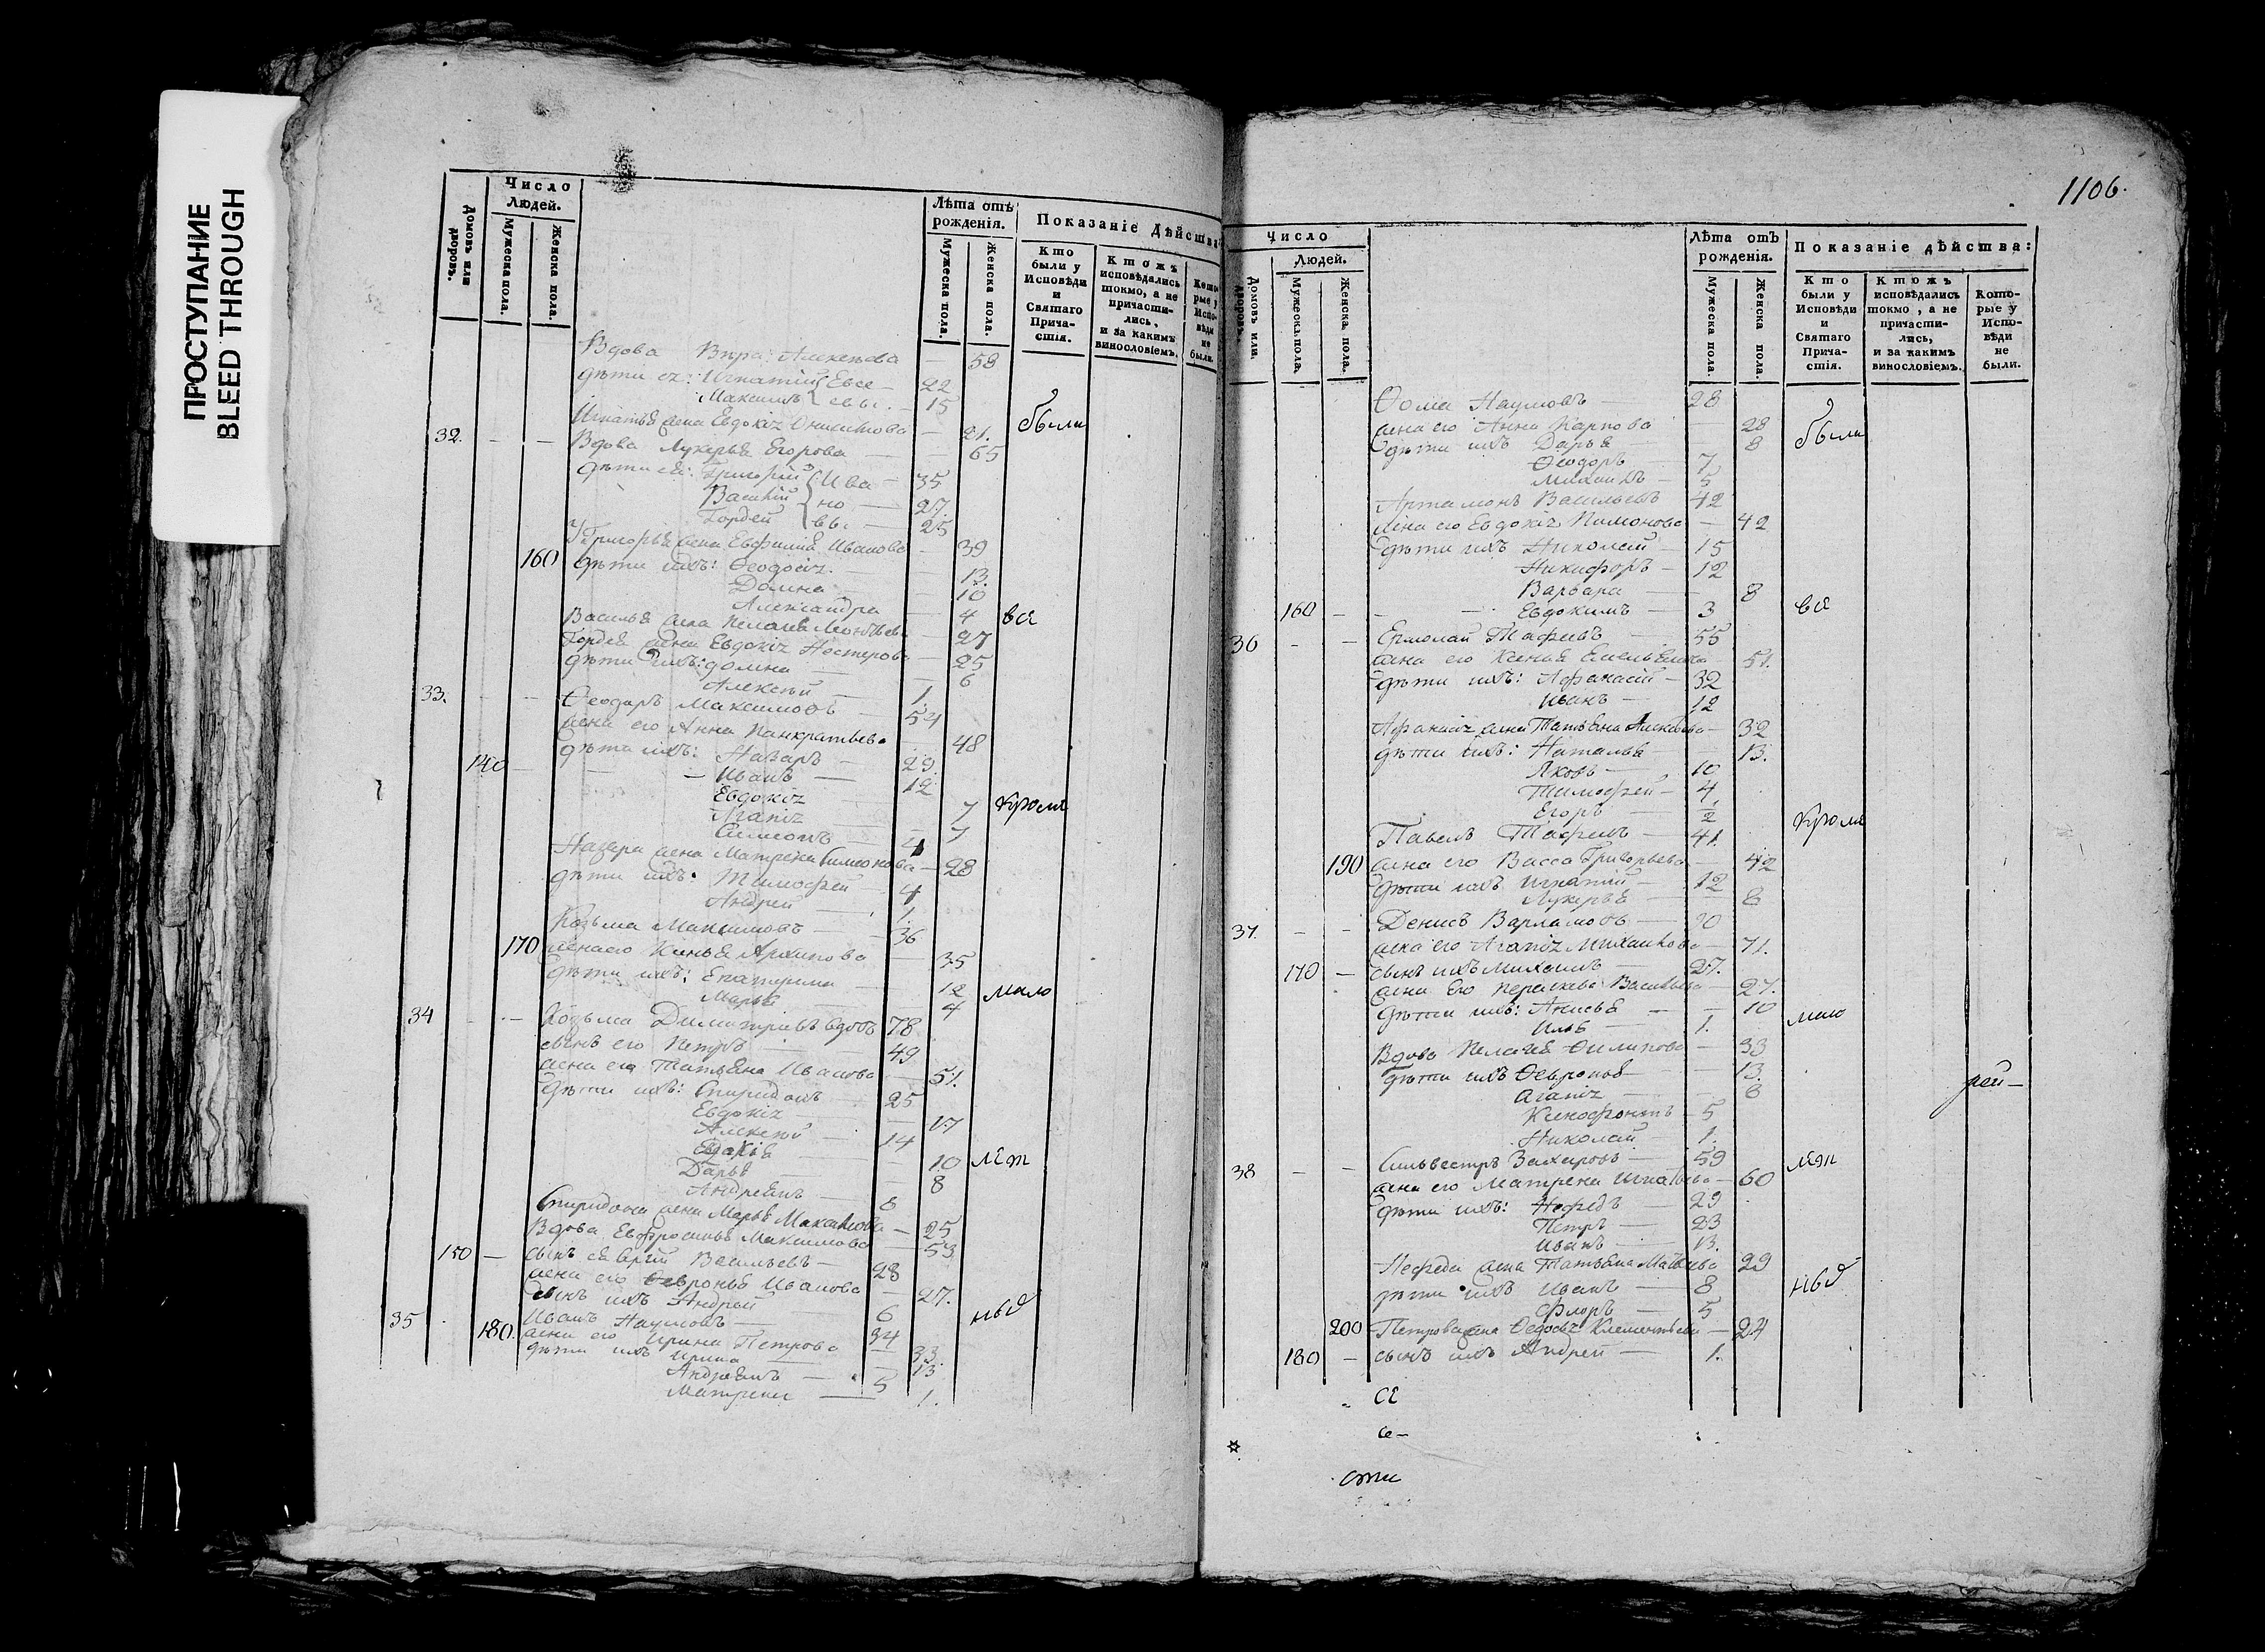 ПРОСТУПАНИЕ
BLEED THROUGH
Домовъ или дворовъ.
Число Людей.
Мужеска пола.
Женска пола.
Лѣта отъ рожденія.
Мужеска пола.
Женска пола.
Показаніе Дѣйства:
Кто были у Исповѣди и Святаго Прича-стія.
Ктожъ исповѣдались токмо, а не причасти-лись, и за какимъ винословіемъ.
Кото-рые у Испо-вѣди не были.
Вдова 58
дѣти ея: Игнатій Евсе- 22
Максимъ евы. 15
Игнатья жена Евдокія 21. были
32. Вдова Лукерья Егорова 65
дѣти ея: Григорій Ива- 35
Василій но- 27.
Гордей вы. 25
Григорья жена Евфимія Иванова 39
160 дѣти ихъ: Феодосія. 13.
Домна 10
Александра 4 всѣ
Василья жена Пелагея 27
Гордея жена Евдокія Нестерова 25
дѣти ихъ: Домна 6
Алексѣй 1.
33. Феодоръ Максимовъ 54
жена его Анна Панкратьева 48
дѣти ихъ: Назаръ 29.
140 Иванъ 12
Евдокія 7 кромѣ
Агапія 7
Симеонъ 4
Назара жена Матрена Симеонова 28
дѣти ихъ: Тимофей 4
Андрей 1.
Козьма Максимовъ 36
170 жена его Ксенья Архипова 35
дѣти ихъ: Екатерина 12 мало
Марья 4
34 Козьма Димитріевъ вдовъ 78
сынъ его Петръ 49
жена его Татьяна Иванова 51.
дѣти ихъ: Спиридонъ 25
Евдокія 17
Алексѣй 14
10 лѣт
Дарья 8
Андреянъ 8
Спиридона жена Марья 25
Вдова Евфросинья Максимова 53
150 сынъ ея Сергій Васильевъ 28
жена его Февронья Иванова 27.
сынъ ихъ Андрей 6 ныѣ
35 Иванъ Наумовъ 34
180. жена его Ирина Петрова 33.
дѣти ихъ Ирина 13
Андреянъ 5
Матрена 1.
1106.
Число
Домовъ или дворовъ.
Людей.
Мужеска пола.
Женска пола.
Лѣта отъ рожденія.
Мужеска пола.
Женска пола.
Показаніе дѣйства:
Кто были у Исповѣди и Святаго Прича-стія.
Ктожъ исповѣдались токмо, а не причасти-лись, и за какимъ винословіемъ.
Кото-рые у Испо-вѣди не были.
Фома Наумовъ 28
жена его Анна Карпова 28 были
дѣти ихъ Дарья 8
Феодоръ 7
Михаилъ 5
Артамонъ Васильевъ 42
жена его Евдокія Пимонова 42
дѣти ихъ Николай 15
Никифоръ 12
Варвара 8
160 Евдокимъ 3 всѣ
36 Ермолай 55
жена его Ксенья Емельянова 51.
дѣти ихъ: Афанасій 32
Иванъ 12
Афанасія жена Татьяна 32
дѣти ихъ: Наталья 13.
Яковъ 10
Тимофей 4
Егоръ 1/2 кромѣ
Павелъ 41.
190 жена его Васса Григорьева 42
дѣти ихъ Игнатій 12
Лукерья 8
37. Денисъ Варламовъ 70
жена его Агапія Михайлова 71.
170 сынъ ихъ Михаилъ 27.
жена его Васильева 27.
дѣти ихъ: Анисья 10 мало
Илья 1.
Вдова Пелагея Филипова 33
дѣти ихъ Февронья 13. рей-
Агапія 6
Ксенофонтъ 5
Николай 1.
38 Сильвестръ Захаровъ 59 лѣт
жена его Матрена Игнатьева 60
дѣти ихъ: Нефедъ 29
Петръ 23
Иванъ 13.
Нефеда жена Татьяна 29
дѣти ихъ Иванъ 8 ныѣ
Флоръ 5
200 Петрова жена Федосья Климентьева 24
180 сынъ ихъ Андрей 1.
се
се-
сти